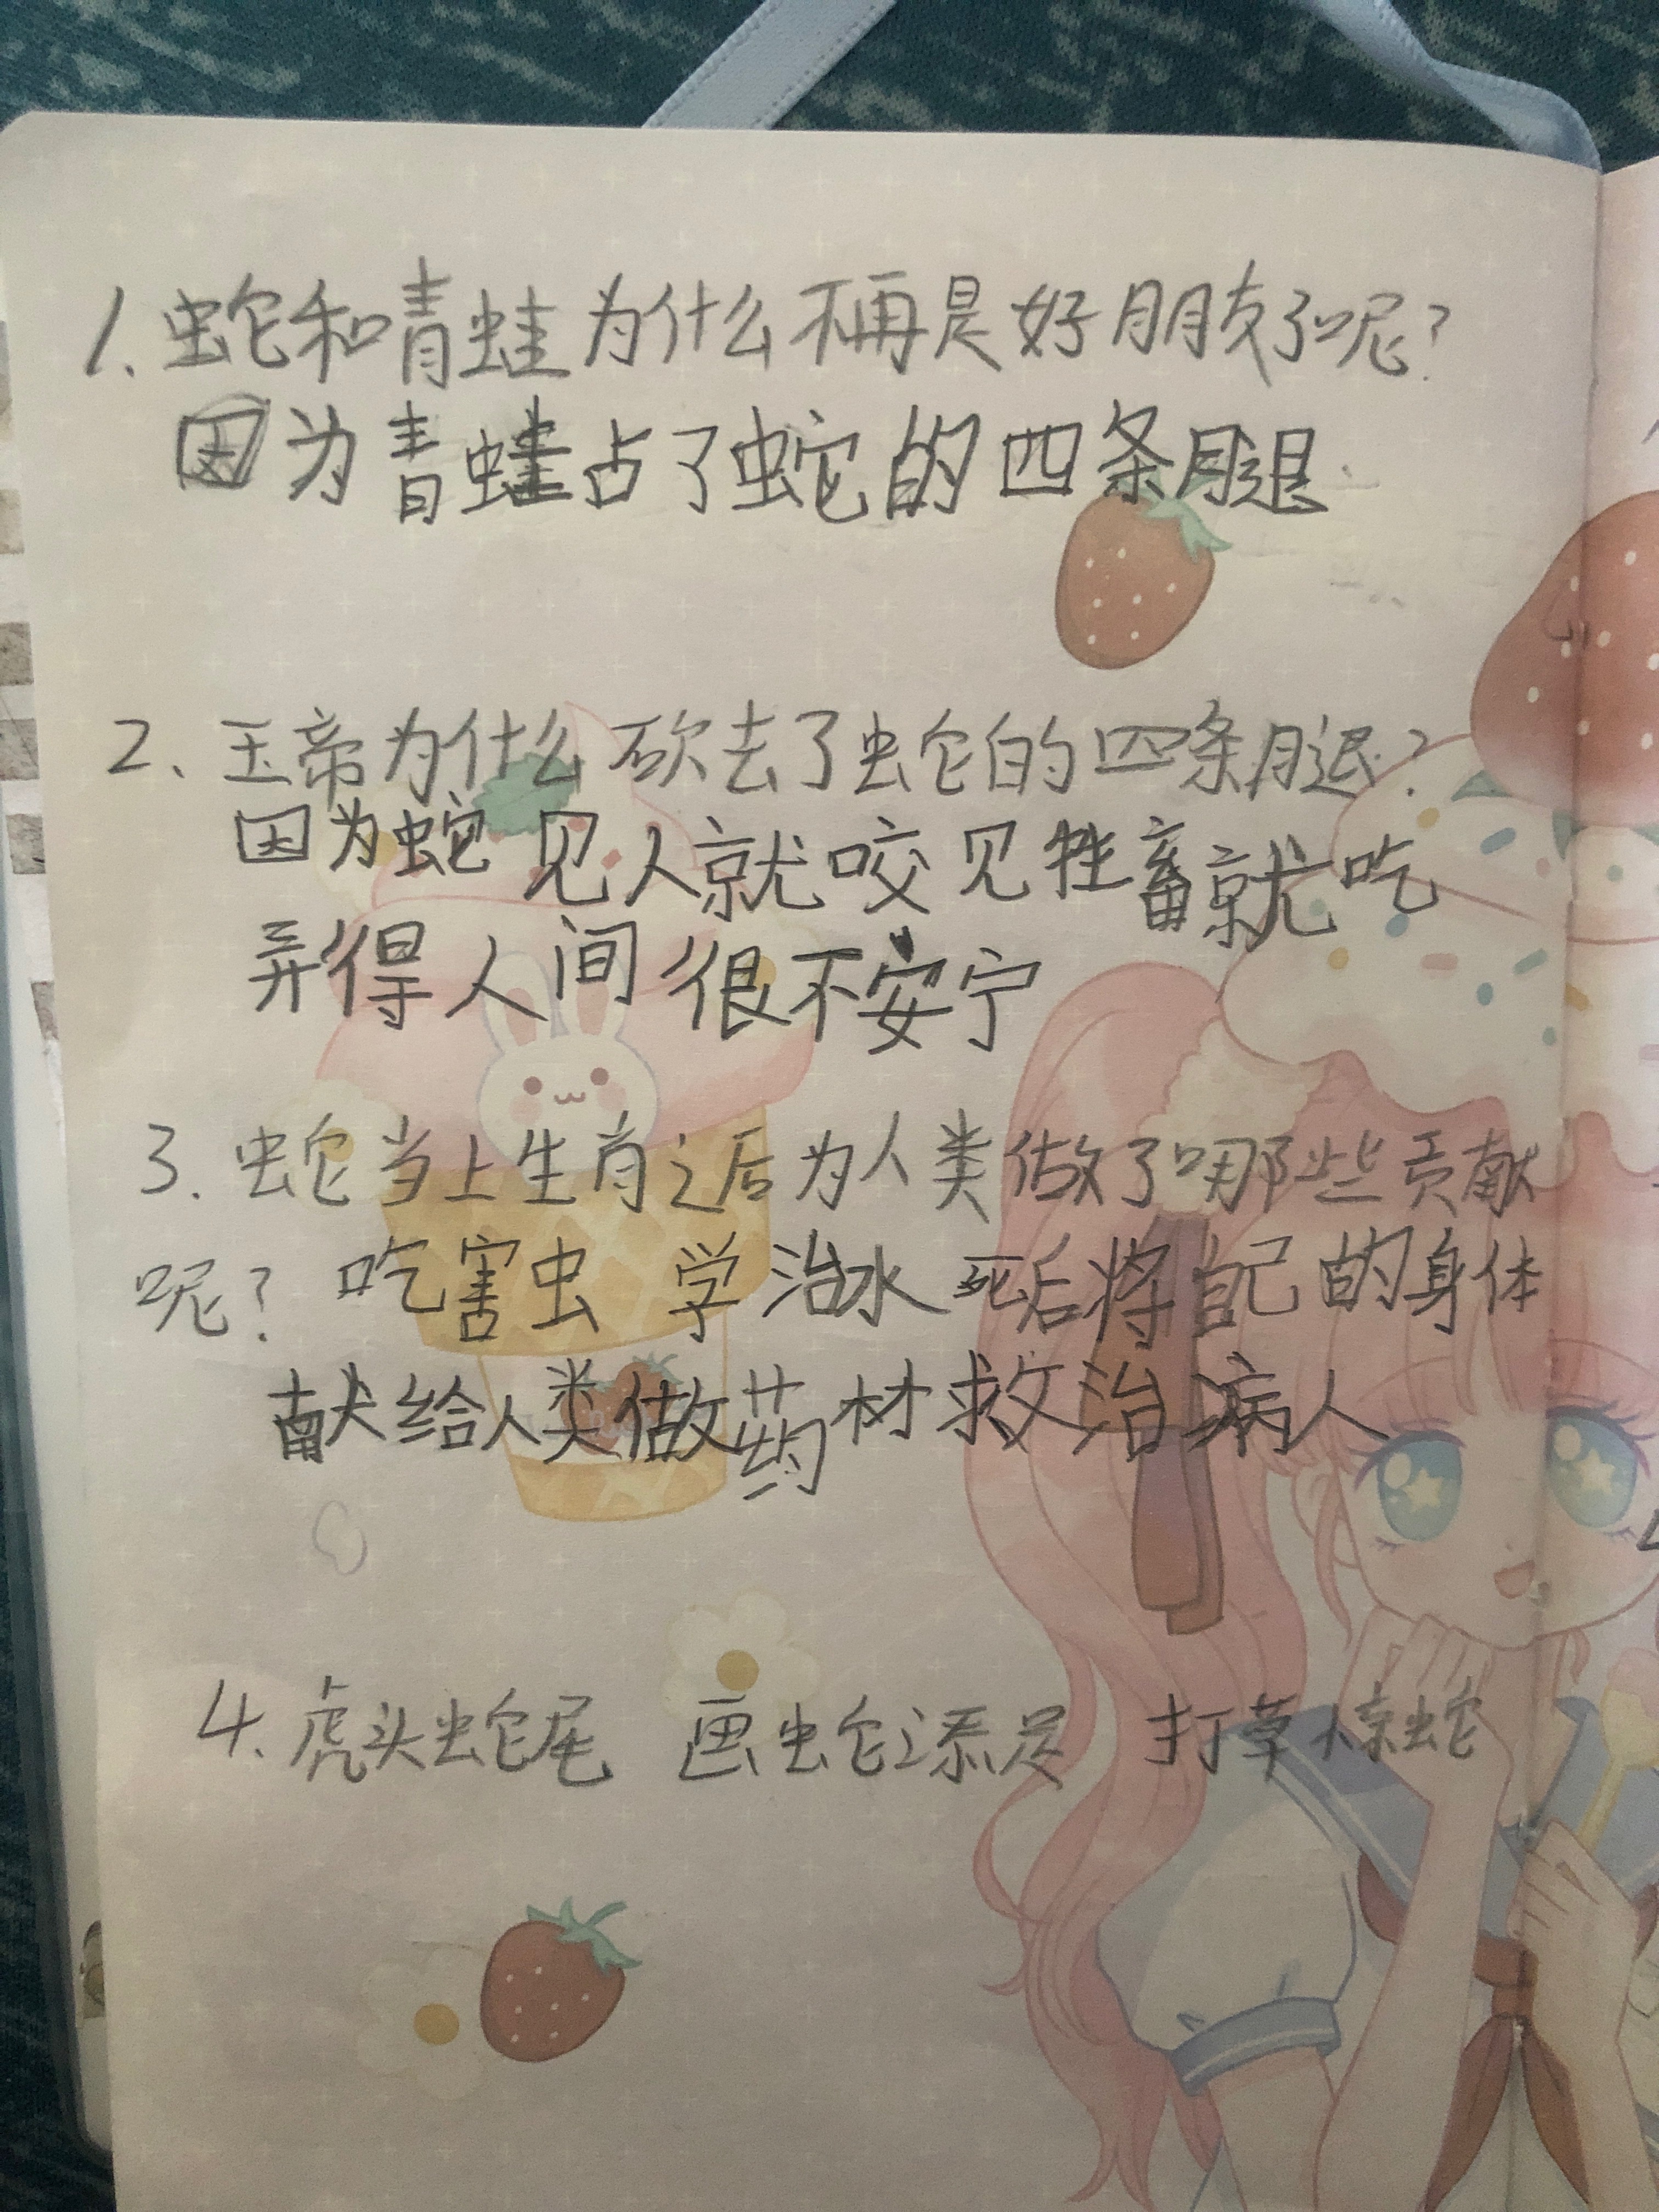 1. 蛇和青蛙为什么不再是好朋友了呢?
因为青蛙占了蛇的四条腿.
2、玉帝为什么砍去了蛇的四条腿?
因为蛇见人就咬见牲畜就吃
弄得人间很不安宁
3. 蛇当上生肖之后为人类做了哪些贡献
呢? 吃害虫 学治水 死后将自己的身体
献给人类做药材救治病人
4. 虎头蛇尾 画蛇添足 打草惊蛇